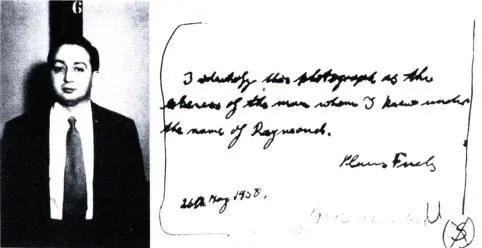 6
I identify this photograph as the
likeness of the man whom I knew under
the name of Raymond.
Klaus Fuchs
26th May 1950.